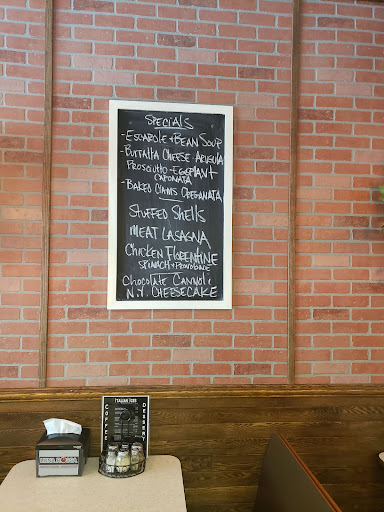 SPECIALS
- ESCAROLE + BEAN SOUP
- BURRATTA CHEESE - ARUGULA
PROSCIUTTO - EGGPLANT
CAPONATA
- BAKED CLAMS OREGANATA
STUFFED SHELLS
MEAT LASAGNA
CHICKEN FLORENTINE
SPINACH + PROVOLONE
CHOCOLATE CANNOLI
N.Y. CHEESECAKE
ITALIAN ICES
COFFEE
DESSERT